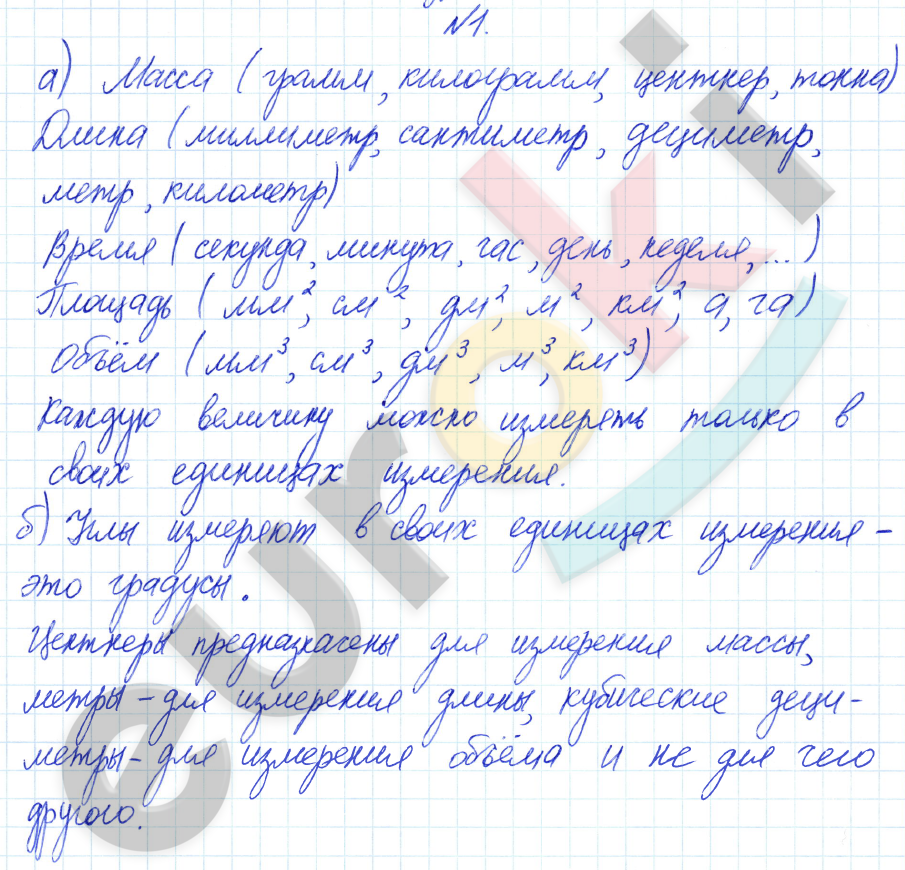 №1.
а) Масса (грамм, килограмм, центнер, тонна)
Длина (миллиметр, сантиметр, дециметр,
метр, километр)
Время (секунда, минута, час, день, неделя, ...)
Площадь (мм², см², дм², м², км², а, га)
Объём (мм³, см³, дм³, м³, км³)
Каждую величину можно измерять только в
своих единицах измерения.
б) Углы измеряют в своих единицах измерения -
это градусы.
Центнеры предназначены для измерения массы,
метры - для измерения длины, кубические деци-
метры - для измерения объёма и не для чего
другого.
euroki